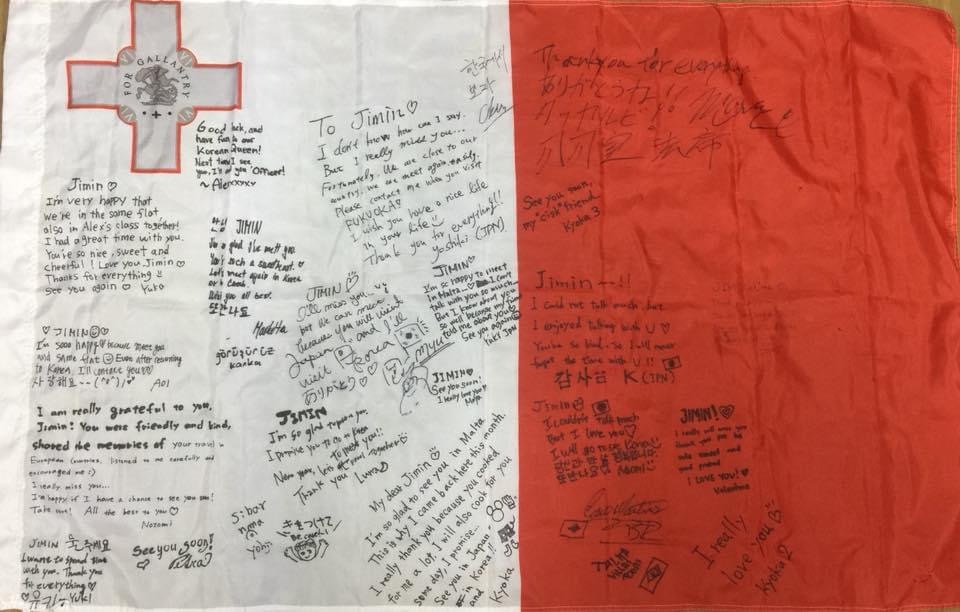 FOR GALLANTRY
Good luck, and
have fun
our
Korean Queen!
Next time I see
you, I'll
you "officer"!
~ Alexxxxx
Jimin ♡
I'm very happy that
we're in the same flat
also in Alex's class together!
I had a great time with you.
You're so nice, sweet and
cheerful! Love you Jimin ♡
Thanks for everything
See you again Yuko
JIMIN
I'm glad I've mett you.
You're such a sweetheart ♡
Let's meet again in Korea
or
Wish you all best.
또 만나요
Görüşürüz
kanka
♡ JIMIN ☺ ♡
I'm sooo happy because meet you
and same flat ☺ Even after returning
to Korea, I'll contact you ♡
사랑해요~~(^o^)/♥ AOI
I am really grateful to you,
Jimin! You were friendly and kind,
shared the memories of your travel in
European countries, listened to me carefully and
encouraged me :)
I really miss you...
I'm happy if I have a chance to see you soon!
Take care! All the best to you ♡
Nozomi
JIMIN
I want to spend time
with you. Thank you
for everything ♡
유키 Yuki
See you soon!
To Jimin ♡
I don't know how can I say.
But I really miss you...
Fortunately, We are close to our
country, we can meet again easily.
Please contact me when you visit
FUKUOKA!!
I wish you have a nice life
in your life
Thank you for everything!!
Yoshiki (JPN)
한국에서
보자
JIMIN
I'll miss you...
but We can meet
because you will visit
Japan and I'll
visit Korea
ありがとう♡♡
myu
JIMIN ♡
I'm so happy to meet
in Malta...♡ I can't
talk with you so much...
But I know about you
so well because my friend
told me about you
See you again ☺
Yuki JPN
JIMIN ♡
See you soon!
I really love you!
JIMIN
I'm so glad to meet you,
I promise you to go to Korea
to meet you!!
Next year, let's
your together ☺
Thank you Luna
My dear Jimin ☺
I'm so glad to see you in Malta
This is why I came back here this month.
I really thank you because you cooked
for me a lot, I will also cook for you
some day, I promise...
See you in Japan
or in Korea!!
Kyoka
Sibor
nema
yohji
きをつけて
Be careful
Thank you for everything
ありがとうな!!
See you soon,
my "cisk" friend
Kyoka 3
Jimin ー!!
I could not talk much but
I enjoyed talking with U ♡
You're so kind. So I will never
forget the time with U!!
감사 K (JPN)
Jimin ☺
I couldn't talk much
But I love you ♡
I will go to see Korea!!
또 만나요
JIMIN! ♡
I really will miss you
thank you for be
so sweet and
good friend
I LOVE YOU! ♡
Valentina
BR
I really
love you
Kyoka 2